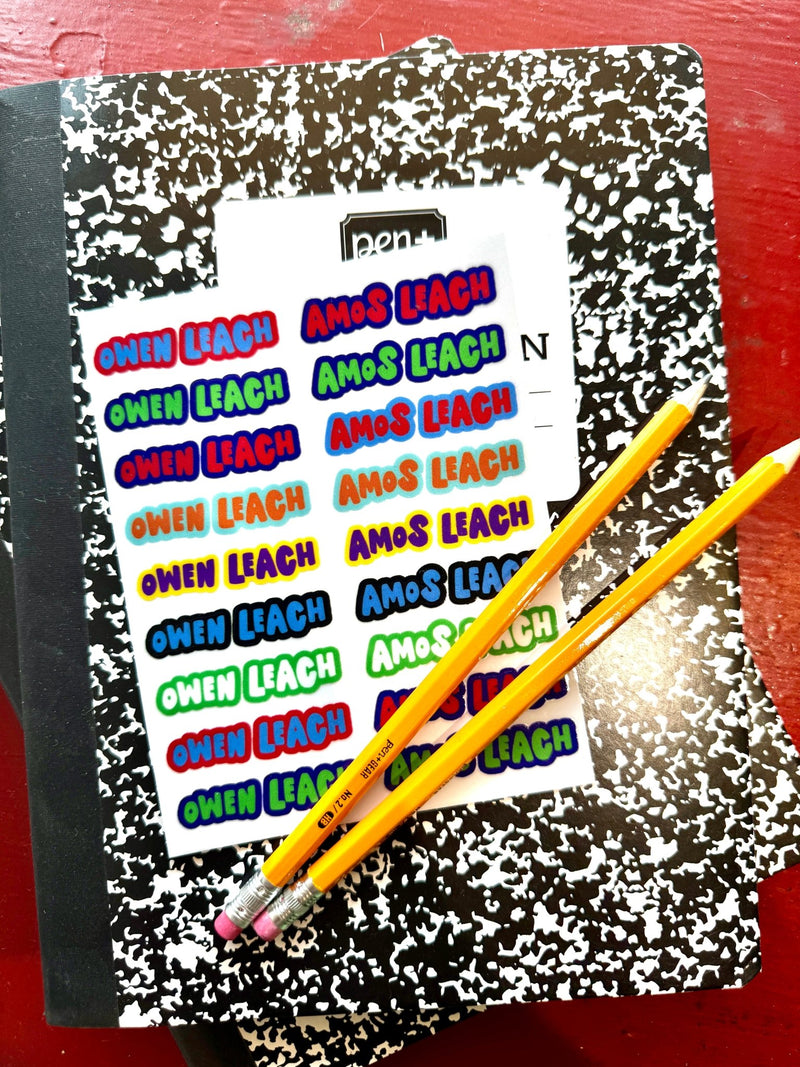 pen+
N
OWEN LEACH AMOS LEACH
OWEN LEACH AMOS LEACH
OWEN LEACH AMOS LEACH
OWEN LEACH AMOS LEACH
OWEN LEACH AMOS LEACH
OWEN LEACH AMOS LEACH
OWEN LEACH AMOS LEACH
OWEN LEACH AMOS LEACH
OWEN LEACH AMOS LEACH
pen+GEAR No.2/HB